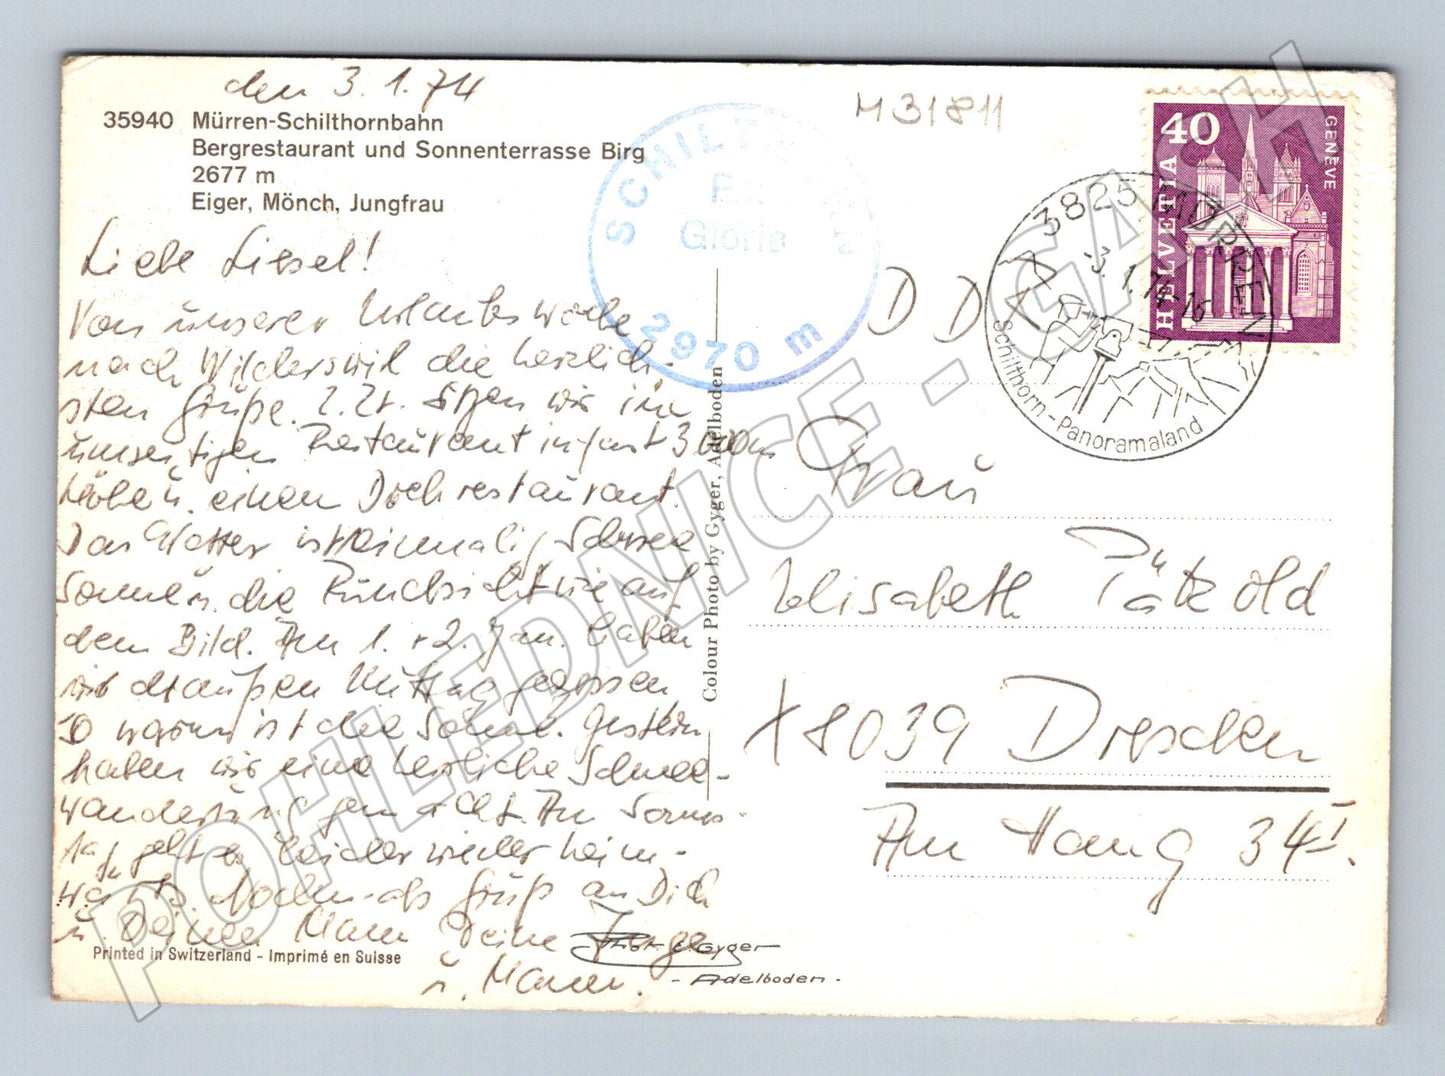 den 3.1.74
35940 Mürren-Schilthornbahn
Bergrestaurant und Sonnenterrasse Birg
2677 m
Eiger, Mönch, Jungfrau
Liebe Liesel!
Von unserer Urlaubswoche
nach Wilderswil die herzlich-
sten Grüße. Z.Zt. sitzen wir im
Restaurant in fast 3000m
Höhe u. einem Drehrestaurant.
Das Wetter ist einmalig, Schnee
Sonne u. die Rundsicht wie auf
dem Bild. Am 1. + 2. Jan. haben
wir draußen Mittag gegessen
so warm ist die Sonne. Gestern
haben wir eine herrliche Schnee-
wanderung gemacht. Am Sonns-
tag geht es leider wieder heim-
wärts. Nochmals Gruß an Dich
u. Deinen Mann Deine Inge
u. Mann.
Printed in Switzerland - Imprimé en Suisse
Phot. E. Gyger
- Adelboden -
Colour Photo by Gyger, Adelboden
M31811
SCHILTHORN
Piz
Gloria
2970 m
3825 MÜRREN
-3.1.74-16
Schilthorn-Panoramaland
40
HELVETIA
GENEVE
DDR
Frau
Elisabeth Pätzold
X8039 Dresden
Am Hang 34 I.
POHLEDNICE - GASH